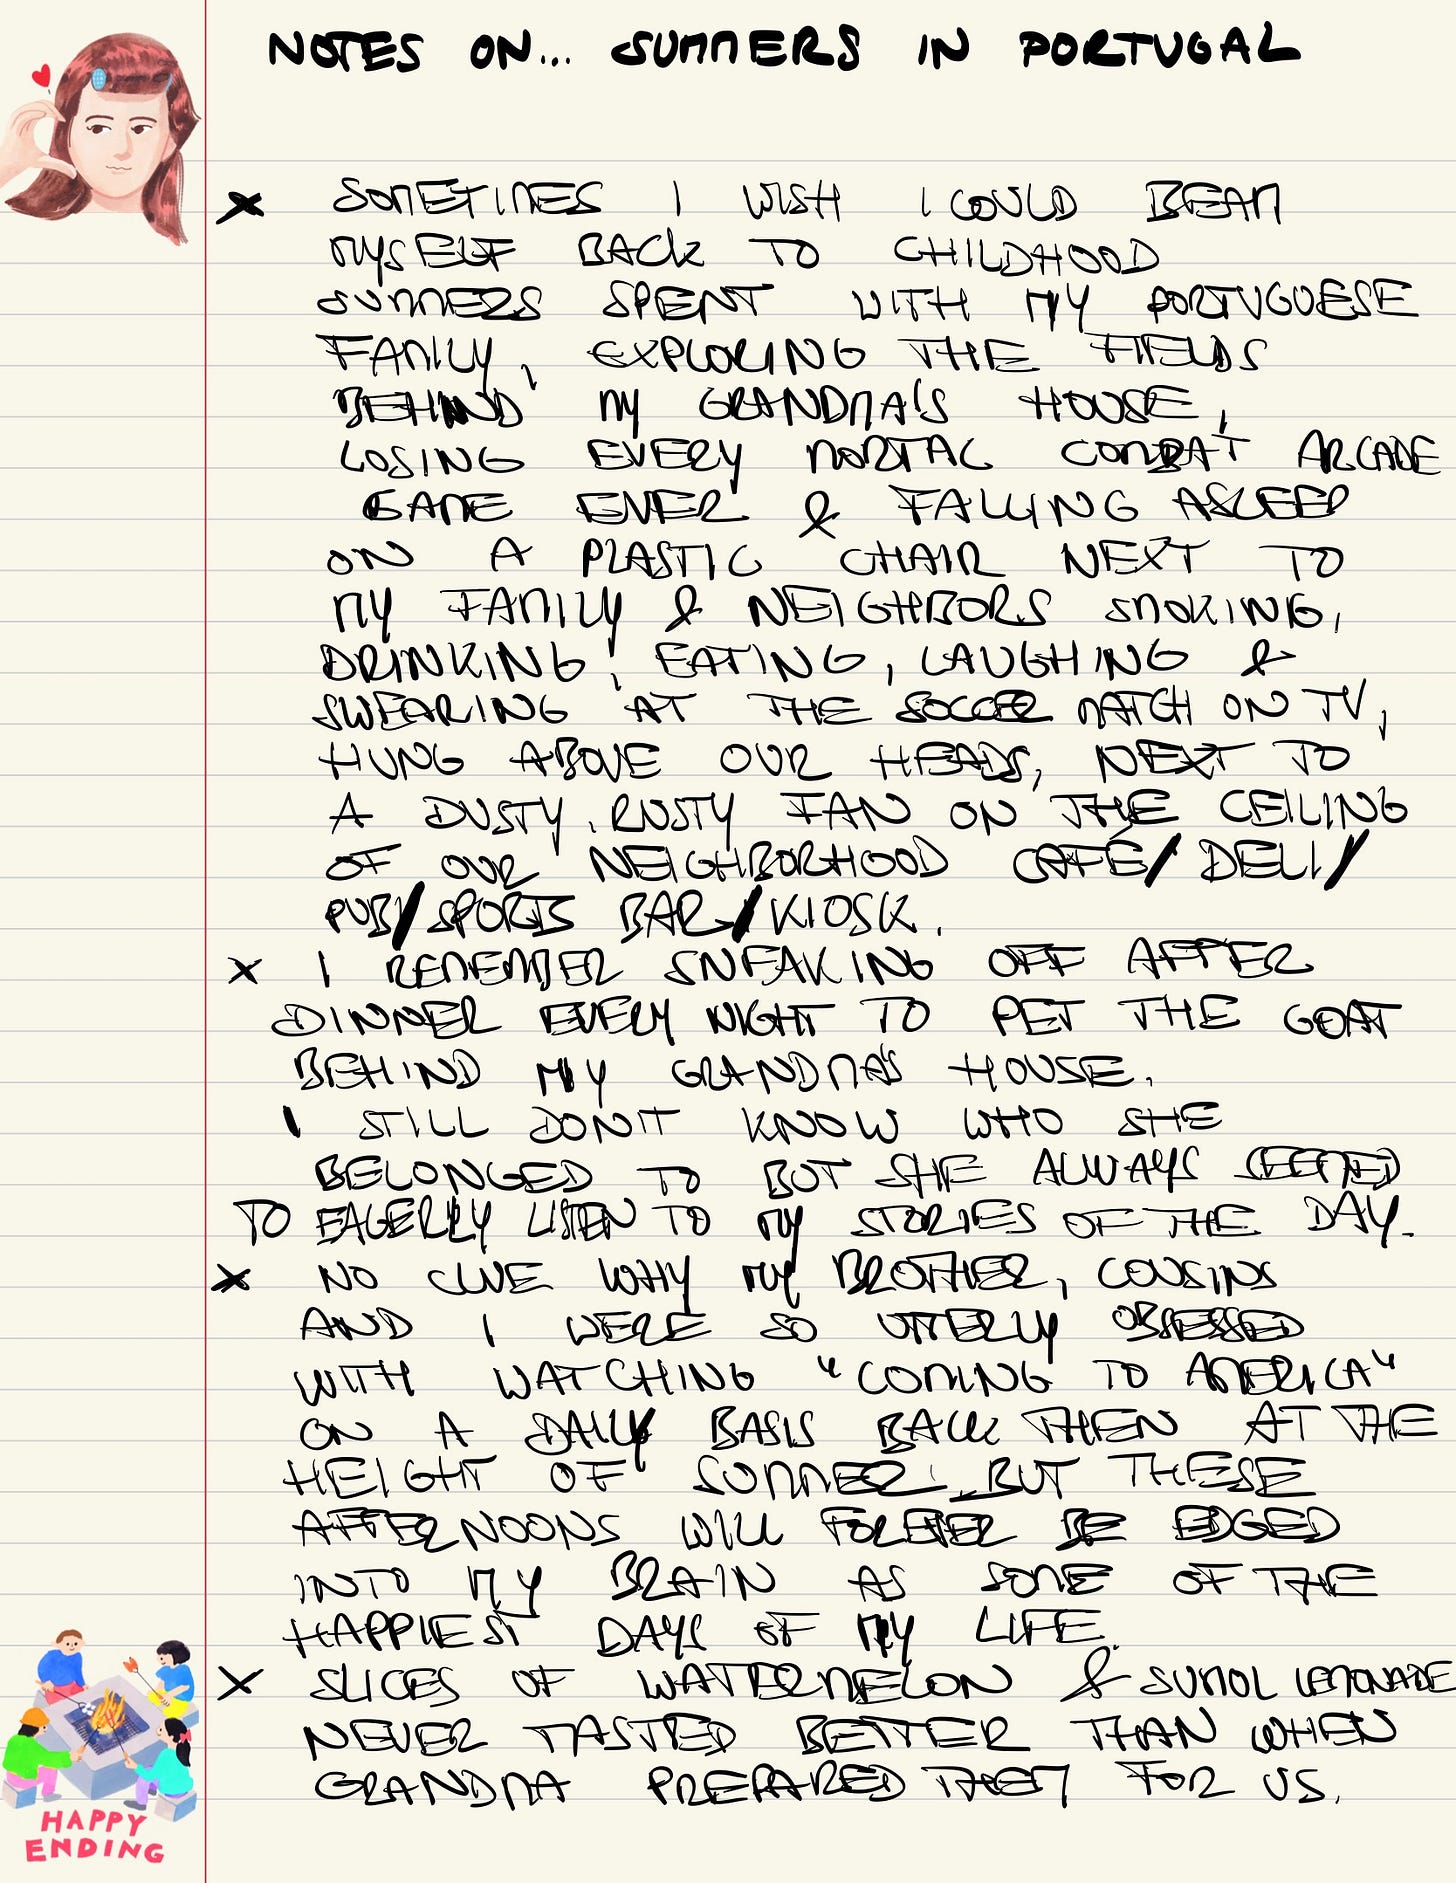 NOTES ON... SUMMERS IN PORTUGAL
x SOMETIMES I WISH I COULD BEAM
MYSELF BACK TO CHILDHOOD
SUMMERS SPENT WITH MY PORTUGUESE
FAMILY, EXPLORING THE FIELDS
BEHIND MY GRANDMA'S HOUSE,
LOSING EVERY MORTAL COMBAT ARCADE
GAME EVER & FALLING ASLEEP
ON A PLASTIC CHAIR NEXT TO
MY FAMILY & NEIGHBORS SMOKING,
DRINKING, EATING, LAUGHING &
SWEARING AT THE SOCCER MATCH ON TV,
HUNG ABOVE OUR HEADS, NEXT TO
A DUSTY, RUSTY FAN ON THE CEILING
OF OUR NEIGHBORHOOD CAFÉ/DELI/
PUB/SPORTS BAR/KIOSK.
x I REMEMBER SNEAKING OFF AFTER
DINNER EVERY NIGHT TO PET THE GOAT
BEHIND MY GRANDMA'S HOUSE.
I STILL DON'T KNOW WHO SHE
BELONGED TO BUT SHE ALWAYS SEEMED
TO EAGERLY LISTEN TO MY STORIES OF THE DAY.
x NO CLUE WHY MY BROTHER, COUSINS
AND I WERE SO UTTERLY OBSESSED
WITH WATCHING "COMING TO AMERICA"
ON A DAILY BASIS BACK THEN AT THE
HEIGHT OF SUMMER, BUT THESE
AFTERNOONS WILL FOREVER BE EDGED
INTO MY BRAIN AS SOME OF THE
HAPPIEST DAYS OF MY LIFE.
x SLICES OF WATERMELON & SUMOL LEMONADE
NEVER TASTED BETTER THAN WHEN
GRANDMA PREPARED THEM FOR US.
HAPPY
ENDING